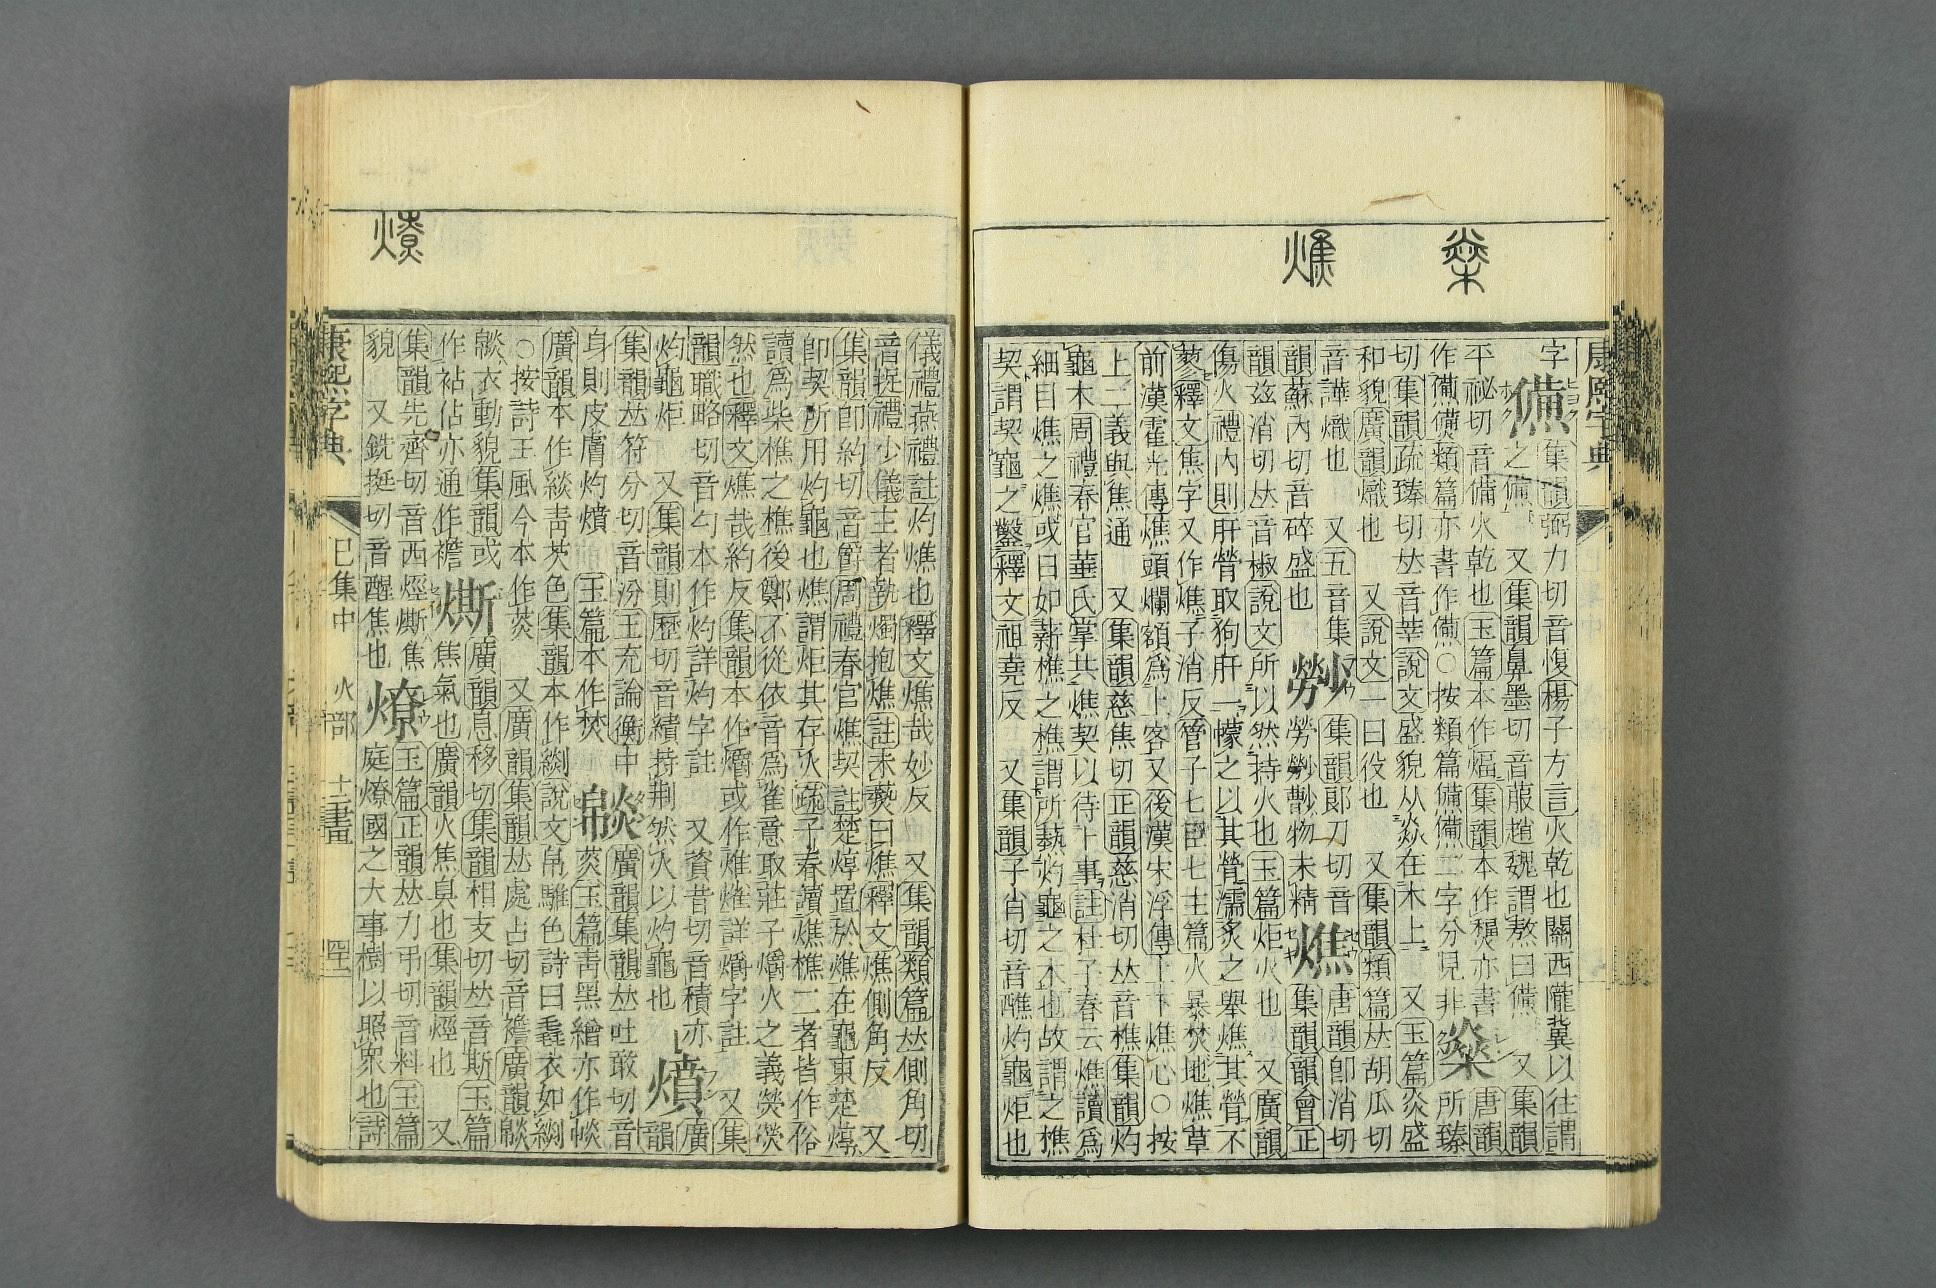 燊
燋
康熙字典
字㷶集韻弼力切音愎楊子方言火乾也關西隴冀以往謂
之㷶又集韻鼻墨切音菔趙魏謂熬曰㷶又集韻
平祕切音備火乾也玉篇本作㷏集韻本作𤏪亦書
作㷶㷶類篇亦書作㷶○按類篇㷶㷶二字分見非燊唐韻所臻
切集韻疏臻切𠀤音莘說文盛貌从焱在木上又玉篇炎盛
和貌廣韻熾也又說文一曰役也又集韻類篇𠀤胡瓜切
音譁熾也又五音集韻蘇內切音碎盛也
𤏪集韻郞刀切音勞𤏪䜎物未精
燋唐韻卽消切集韻韻會正
韻兹消切𠀤音椒說文所以然持火也玉篇炬火也又廣韻
傷火禮內則肝膋取狗肝一幪之以其膋濡炙之舉燋其膋不
蓼釋文焦字又作燋子消反管子七臣七主篇火暴焚地燋草
前漢霍光傳燋頭爛額爲上客又後漢宋浮傳上下燋心○按
上二義與焦通又集韻慈焦切正韻慈消切𠀤音樵集韻灼
龜木周禮春官華氏掌共燋契以待卜事註杜子春云燋讀爲
細目燋之燋或曰如薪樵之樵謂所爇灼龜之木也故謂之樵
契謂契龜之鑿釋文祖堯反又集韻子肖切音醮灼龜炬也
燎
儀禮燕禮註灼燋也釋文燋哉妙反又集韻類篇𠀤側角切
音捉禮少儀主者執燭抱燋註未爇曰燋釋文燋側角反又
集韻卽約切音爵周禮春官燋契註楚焞置於燋在龜東楚焞
卽契所用灼龜也燋謂炬其存火疏子春讀燋樵二者皆作俗
讀爲柴樵之樵後鄭不從依音爲雀意取莊子爝火之義熒熒
然也釋文燋哉約反集韻本作爝或作㸈㸈詳爝字註又集
韻職略切音勺本作灼詳灼字註又資昔切音積亦
灼龜炬又集韻則歷切音績持荆然火以灼龜也燌廣韻
集韻𠀤符分切音汾王充論衡中
身則皮膚灼燌玉篇本作焚㷋廣韻集韻𠀤吐敢切音
廣韻本作緂靑莢色集韻本作緅說文帛騅色詩曰毳衣如緅
○按詩王風今本作菼又廣韻集韻𠀤處占切音襜廣韻㷋
㷋衣動貌集韻或作袩佔亦通作襜㷩廣韻息移切集韻相支切𠀤音斯玉篇
焦氣也廣韻火焦臭也集韻烴也又
集韻先齊切音西烴㷩焦
貌又銑挺切音醒焦也燎玉篇正韻𠀤力弔切音料玉篇
庭燎國之大事樹以照衆也詩
康熙字典 巳集中 火部 十二畫